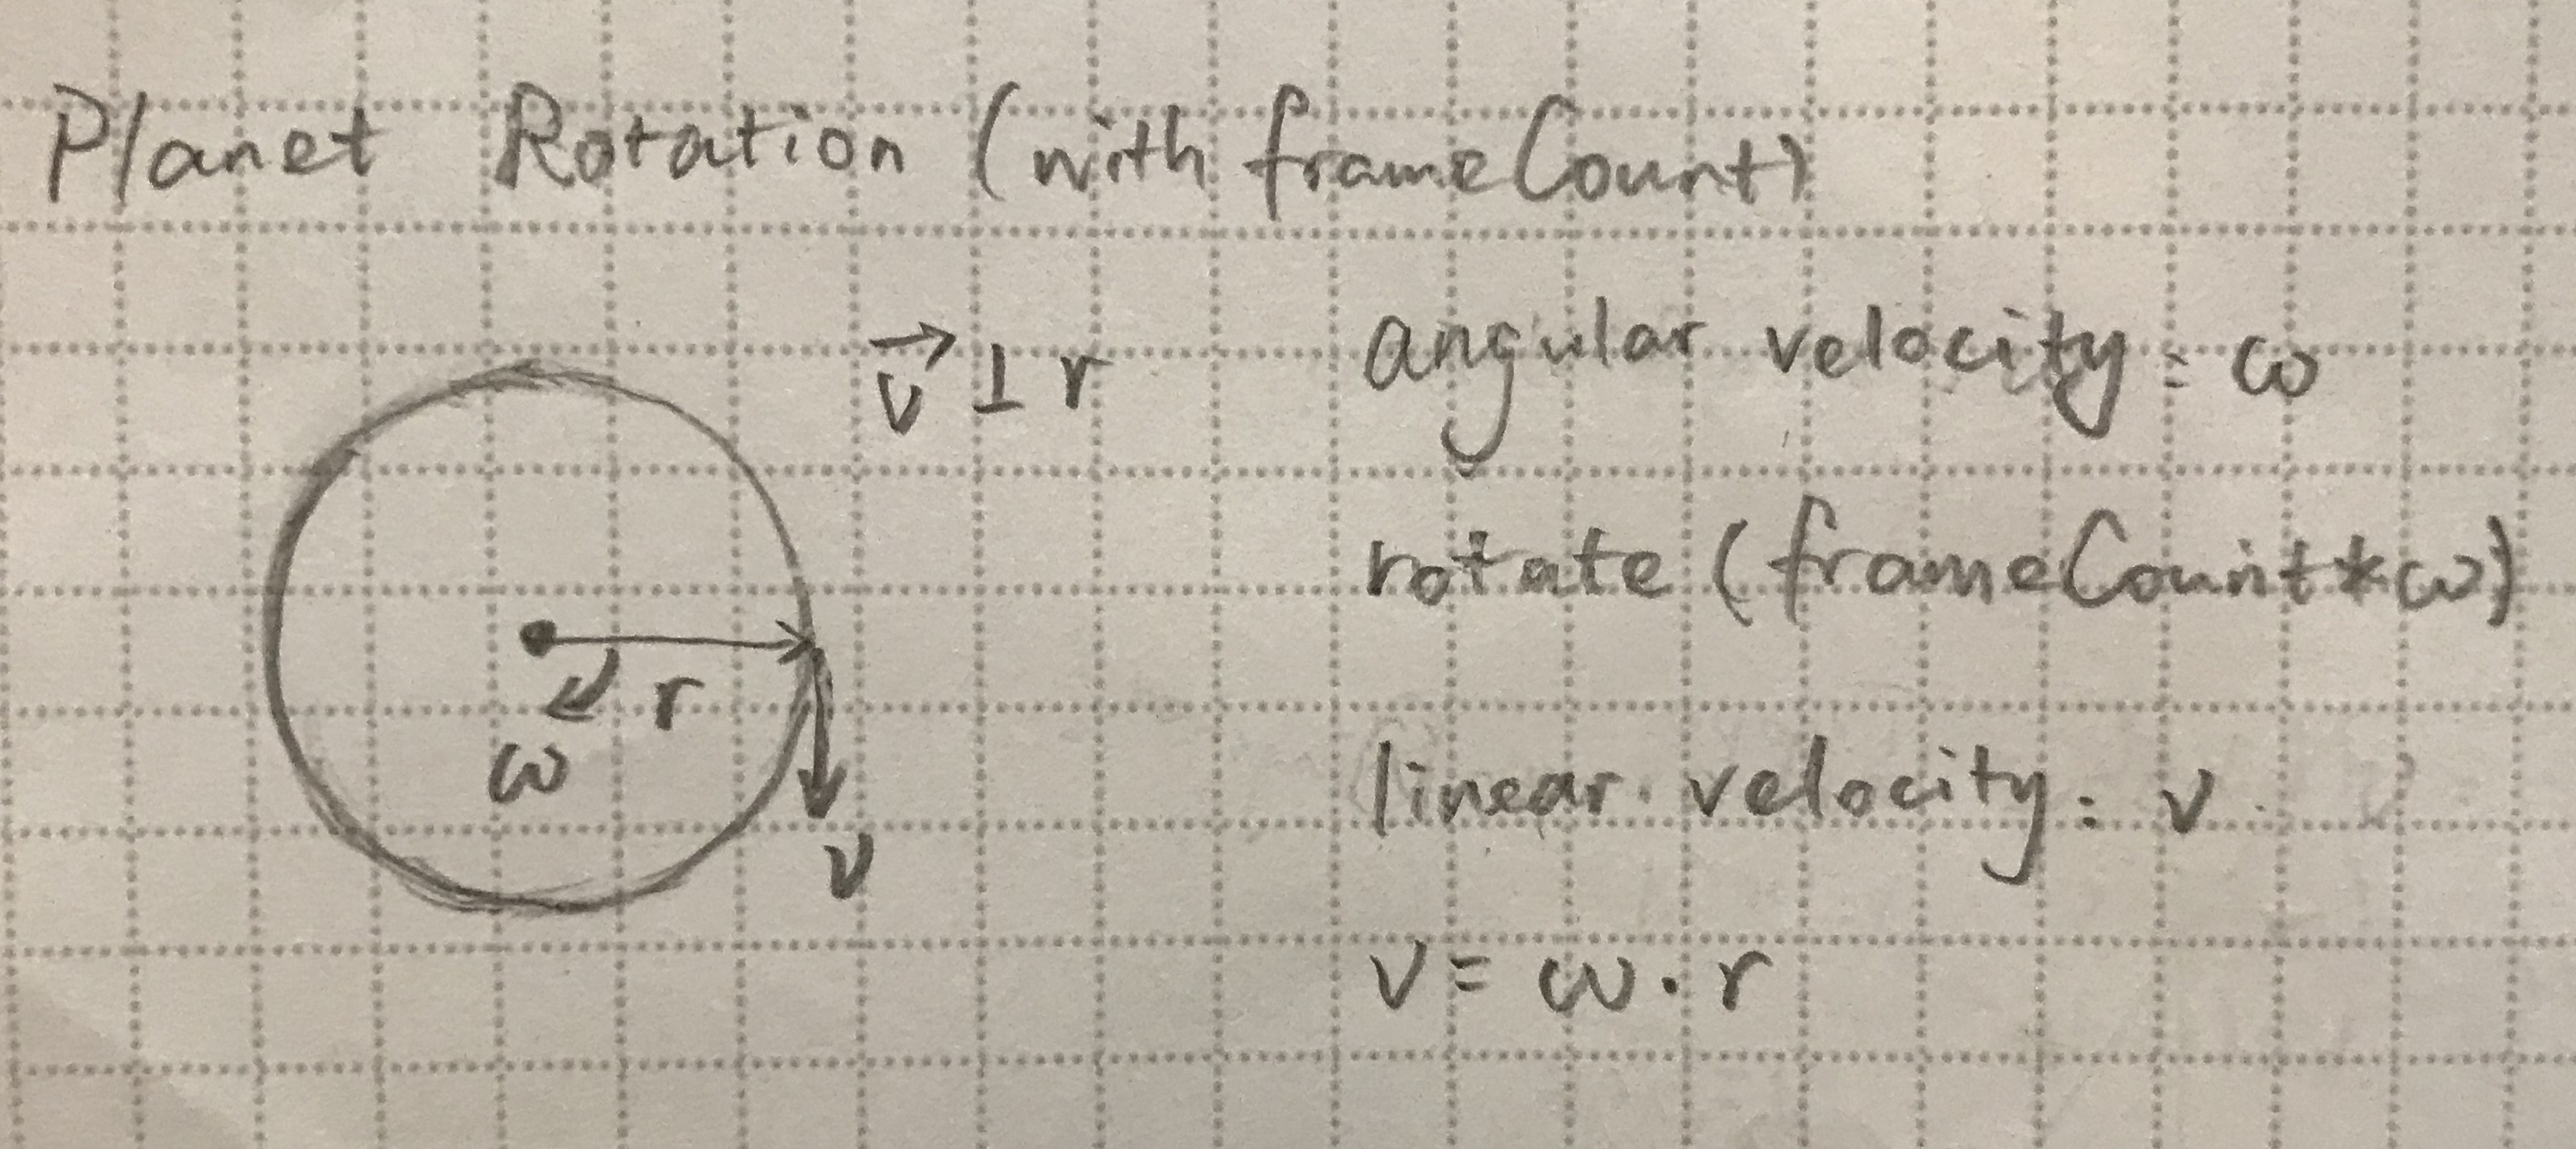 Planet Rotation (with frameCount)
v ⊥ r
angular velocity: ω
rotate (frameCount*ω)
r
ω
linear velocity: v
v
v = ω · r